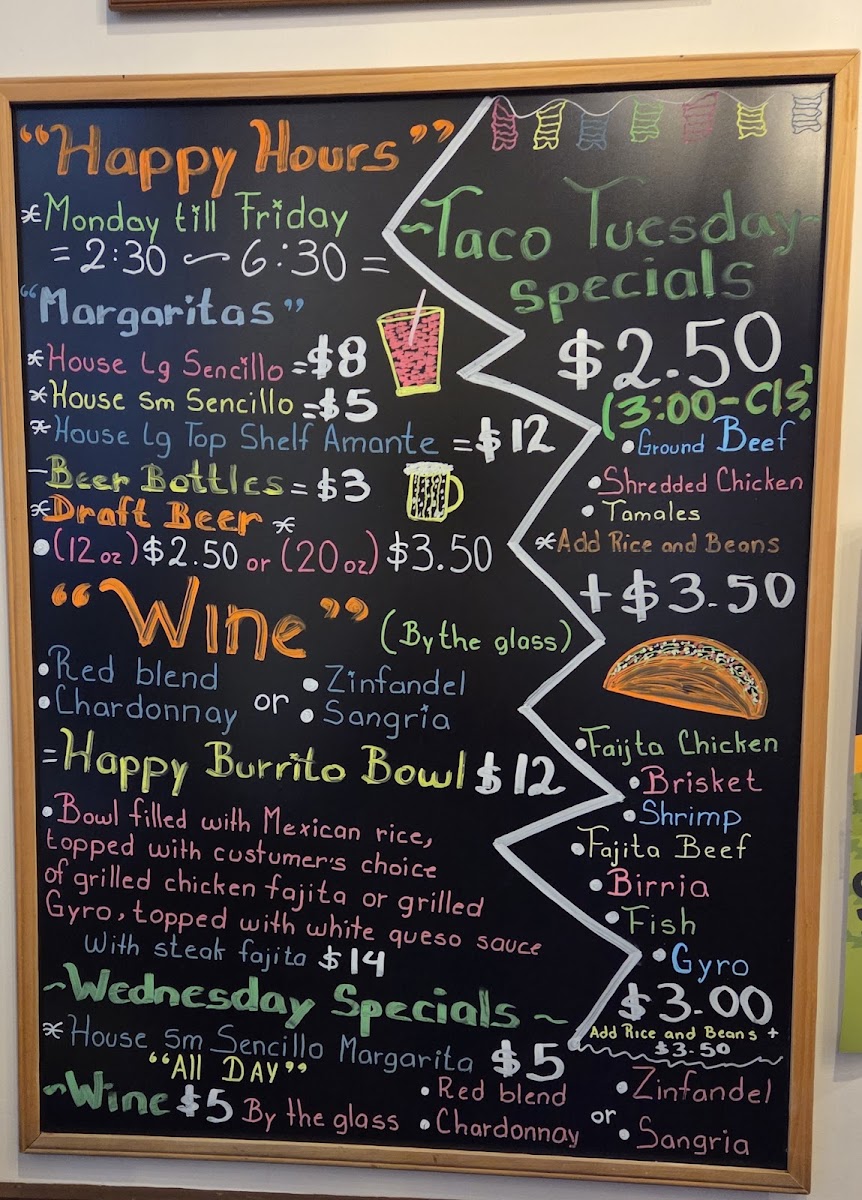 "Happy Hours"
*Monday till Friday
= 2:30 ~ 6:30 =
"Margaritas"
*House Lg Sencillo =$8
*House sm Sencillo =$5
*House Lg Top Shelf Amante =$12
-Beer Bottles = $3
*Draft Beer *
•(12 oz) $2.50 or (20 oz) $3.50
"Wine" (By the glass)
•Red blend or •Zinfandel
•Chardonnay •Sangria
=Happy Burrito Bowl $12
•Bowl filled with Mexican rice,
topped with custumer's choice
of grilled chicken fajita or grilled
Gyro, topped with white queso sauce
With steak fajita $14
~Taco Tuesday~
specials
$2.50
(3:00-Cls)
•Ground Beef
•Shredded Chicken
•Tamales
*Add Rice and Beans
+$3.50
•Faijta Chicken
•Brisket
•Shrimp
•Fajita Beef
•Birria
•Fish
•Gyro
$3.00
Add Rice and Beans +
$3.50
~Wednesday Specials~
*House sm Sencillo Margarita $5
"All DAY"
~Wine $5 By the glass •Red blend or •Zinfandel
•Chardonnay •Sangria